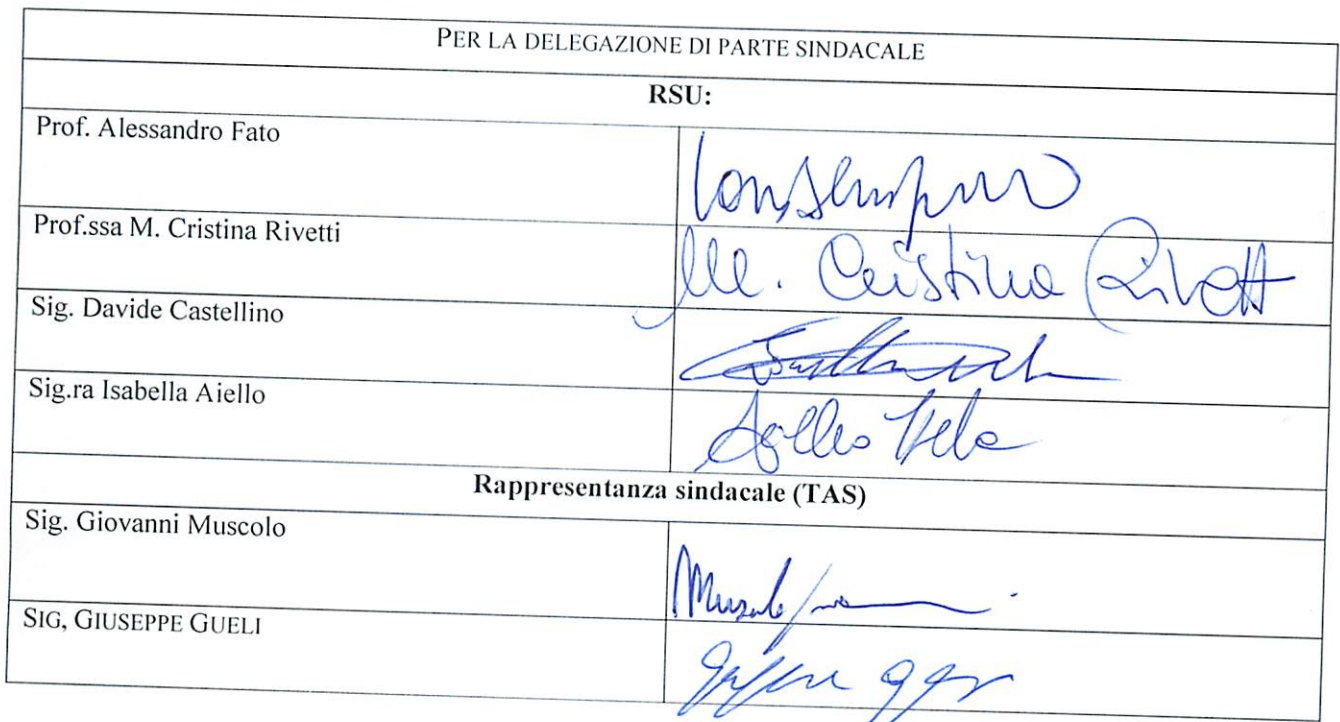 PER LA DELEGAZIONE DI PARTE SINDACALE
RSU:
Prof. Alessandro Fato
Prof.ssa M. Cristina Rivetti
M. Cristina Rivetti
Sig. Davide Castellino
Sig.ra Isabella Aiello
Rappresentanza sindacale (TAS)
Sig. Giovanni Muscolo
SIG, GIUSEPPE GUELI